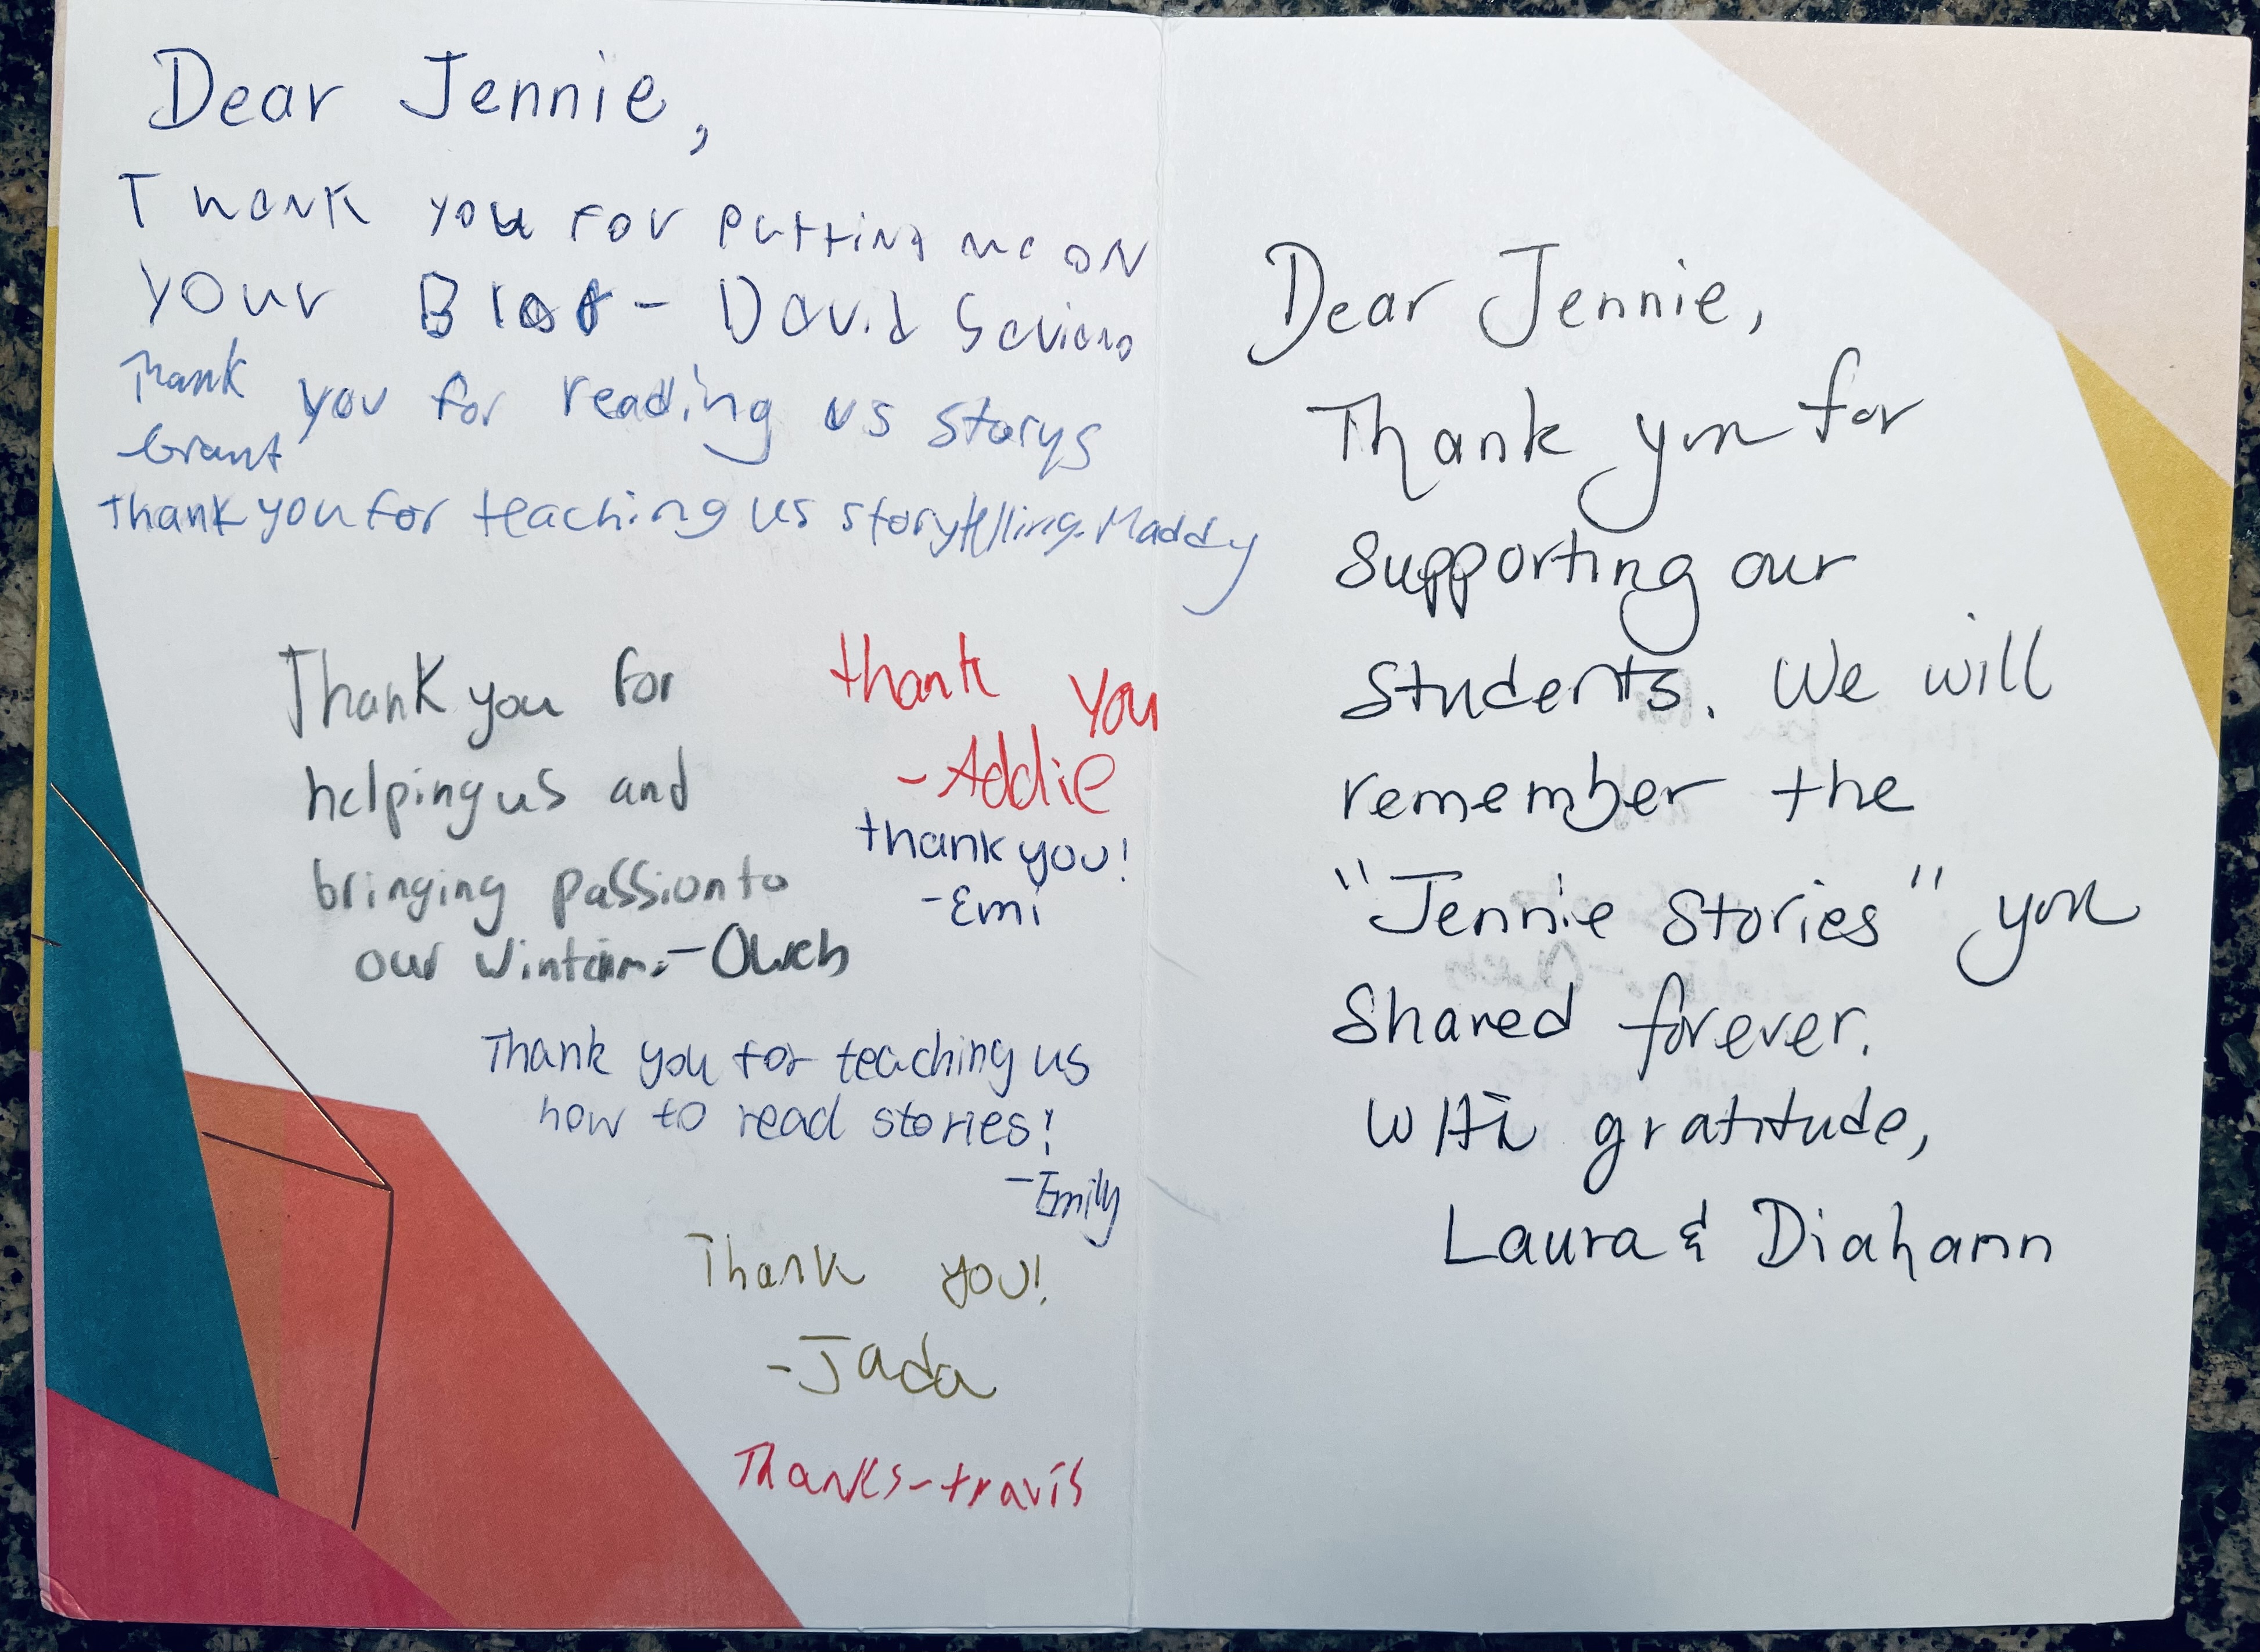 Dear Jennie,
Thank you for putting me on
your Blog - David
Thank you for reading us storys
Grant
thank you for teaching us storytelling. Maddy
Thank you for
helping us and
bringing passion to
our - Owen
thank you
- Addie
thank you!
- Emi
Thank you for teaching us
how to read stories!
- Emily
Thank you!
- Jada
Thanks - travis
Dear Jennie,
Thank you for
supporting our
students. We will
remember the
"Jennie Stories" you
shared forever.
With gratitude,
Laura & Diahann